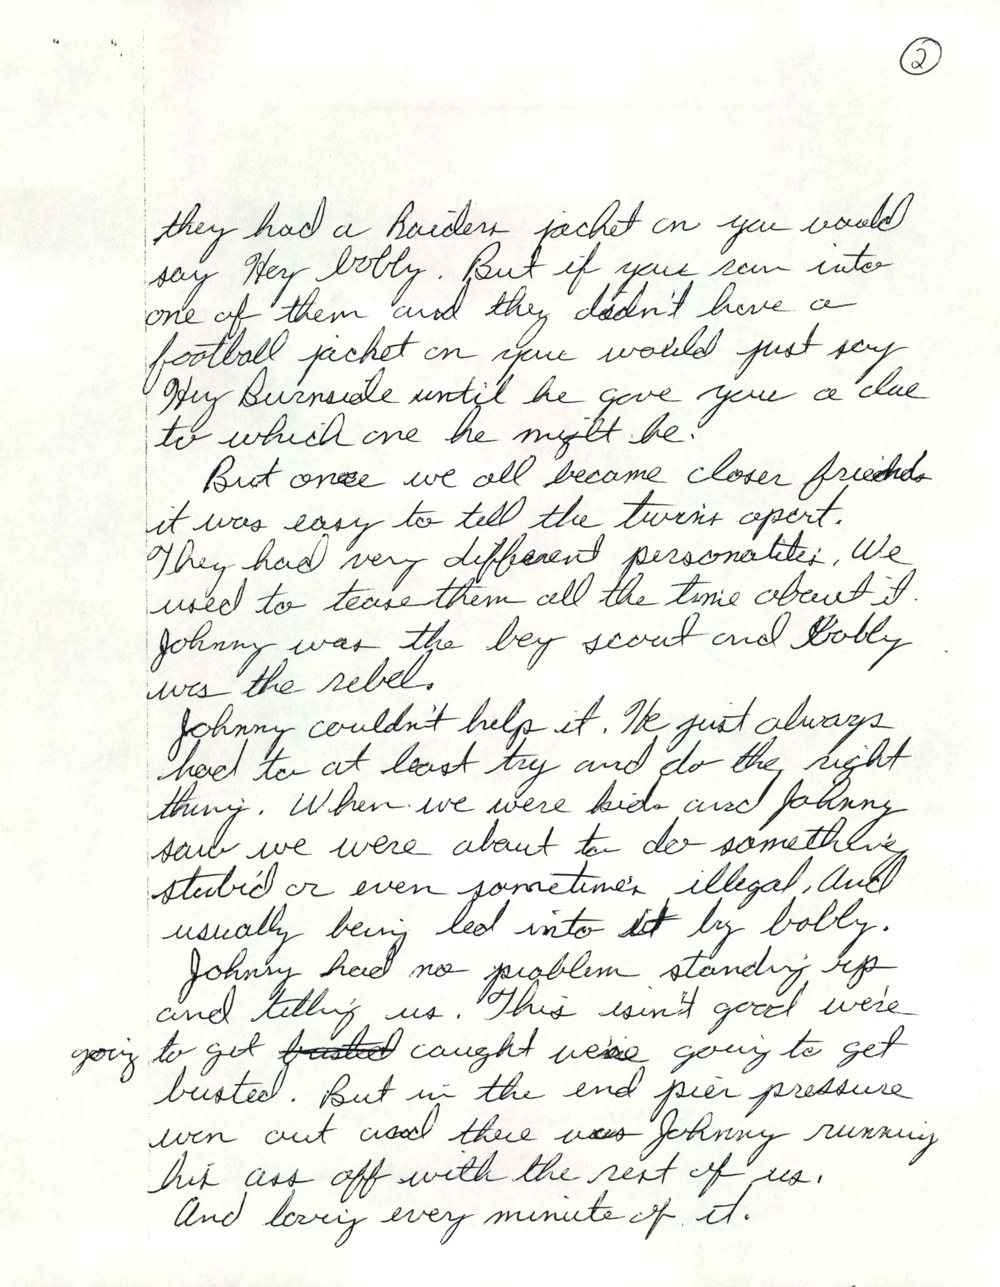 2
they had a Raiders jacket on you would
say Hey bobby. But if you ran into
one of them and they didn't have a
football jacket on you would just say
Hey Burnside until he gave you a clue
to which one he might be.
But once we all became closer friends
it was easy to tell the twins apart.
They had very different personalities. We
used to tease them all the time about it.
Johnny was the boy scout and bobby
was the rebel.
Johnny couldn't help it. He just always
had to at least try and do the right
thing. When we were kids and Johnny
saw we were about to do something
stubid or even sometimes illegal. And
usually being led into it by bobby.
Johnny had no problem standing up
and telling us. This isn't good we're
going to get busted caught we're going to get
busted. But in the end pier pressure
won out and there was Johnny running
his ass off with the rest of us.
And loving every minute of it.